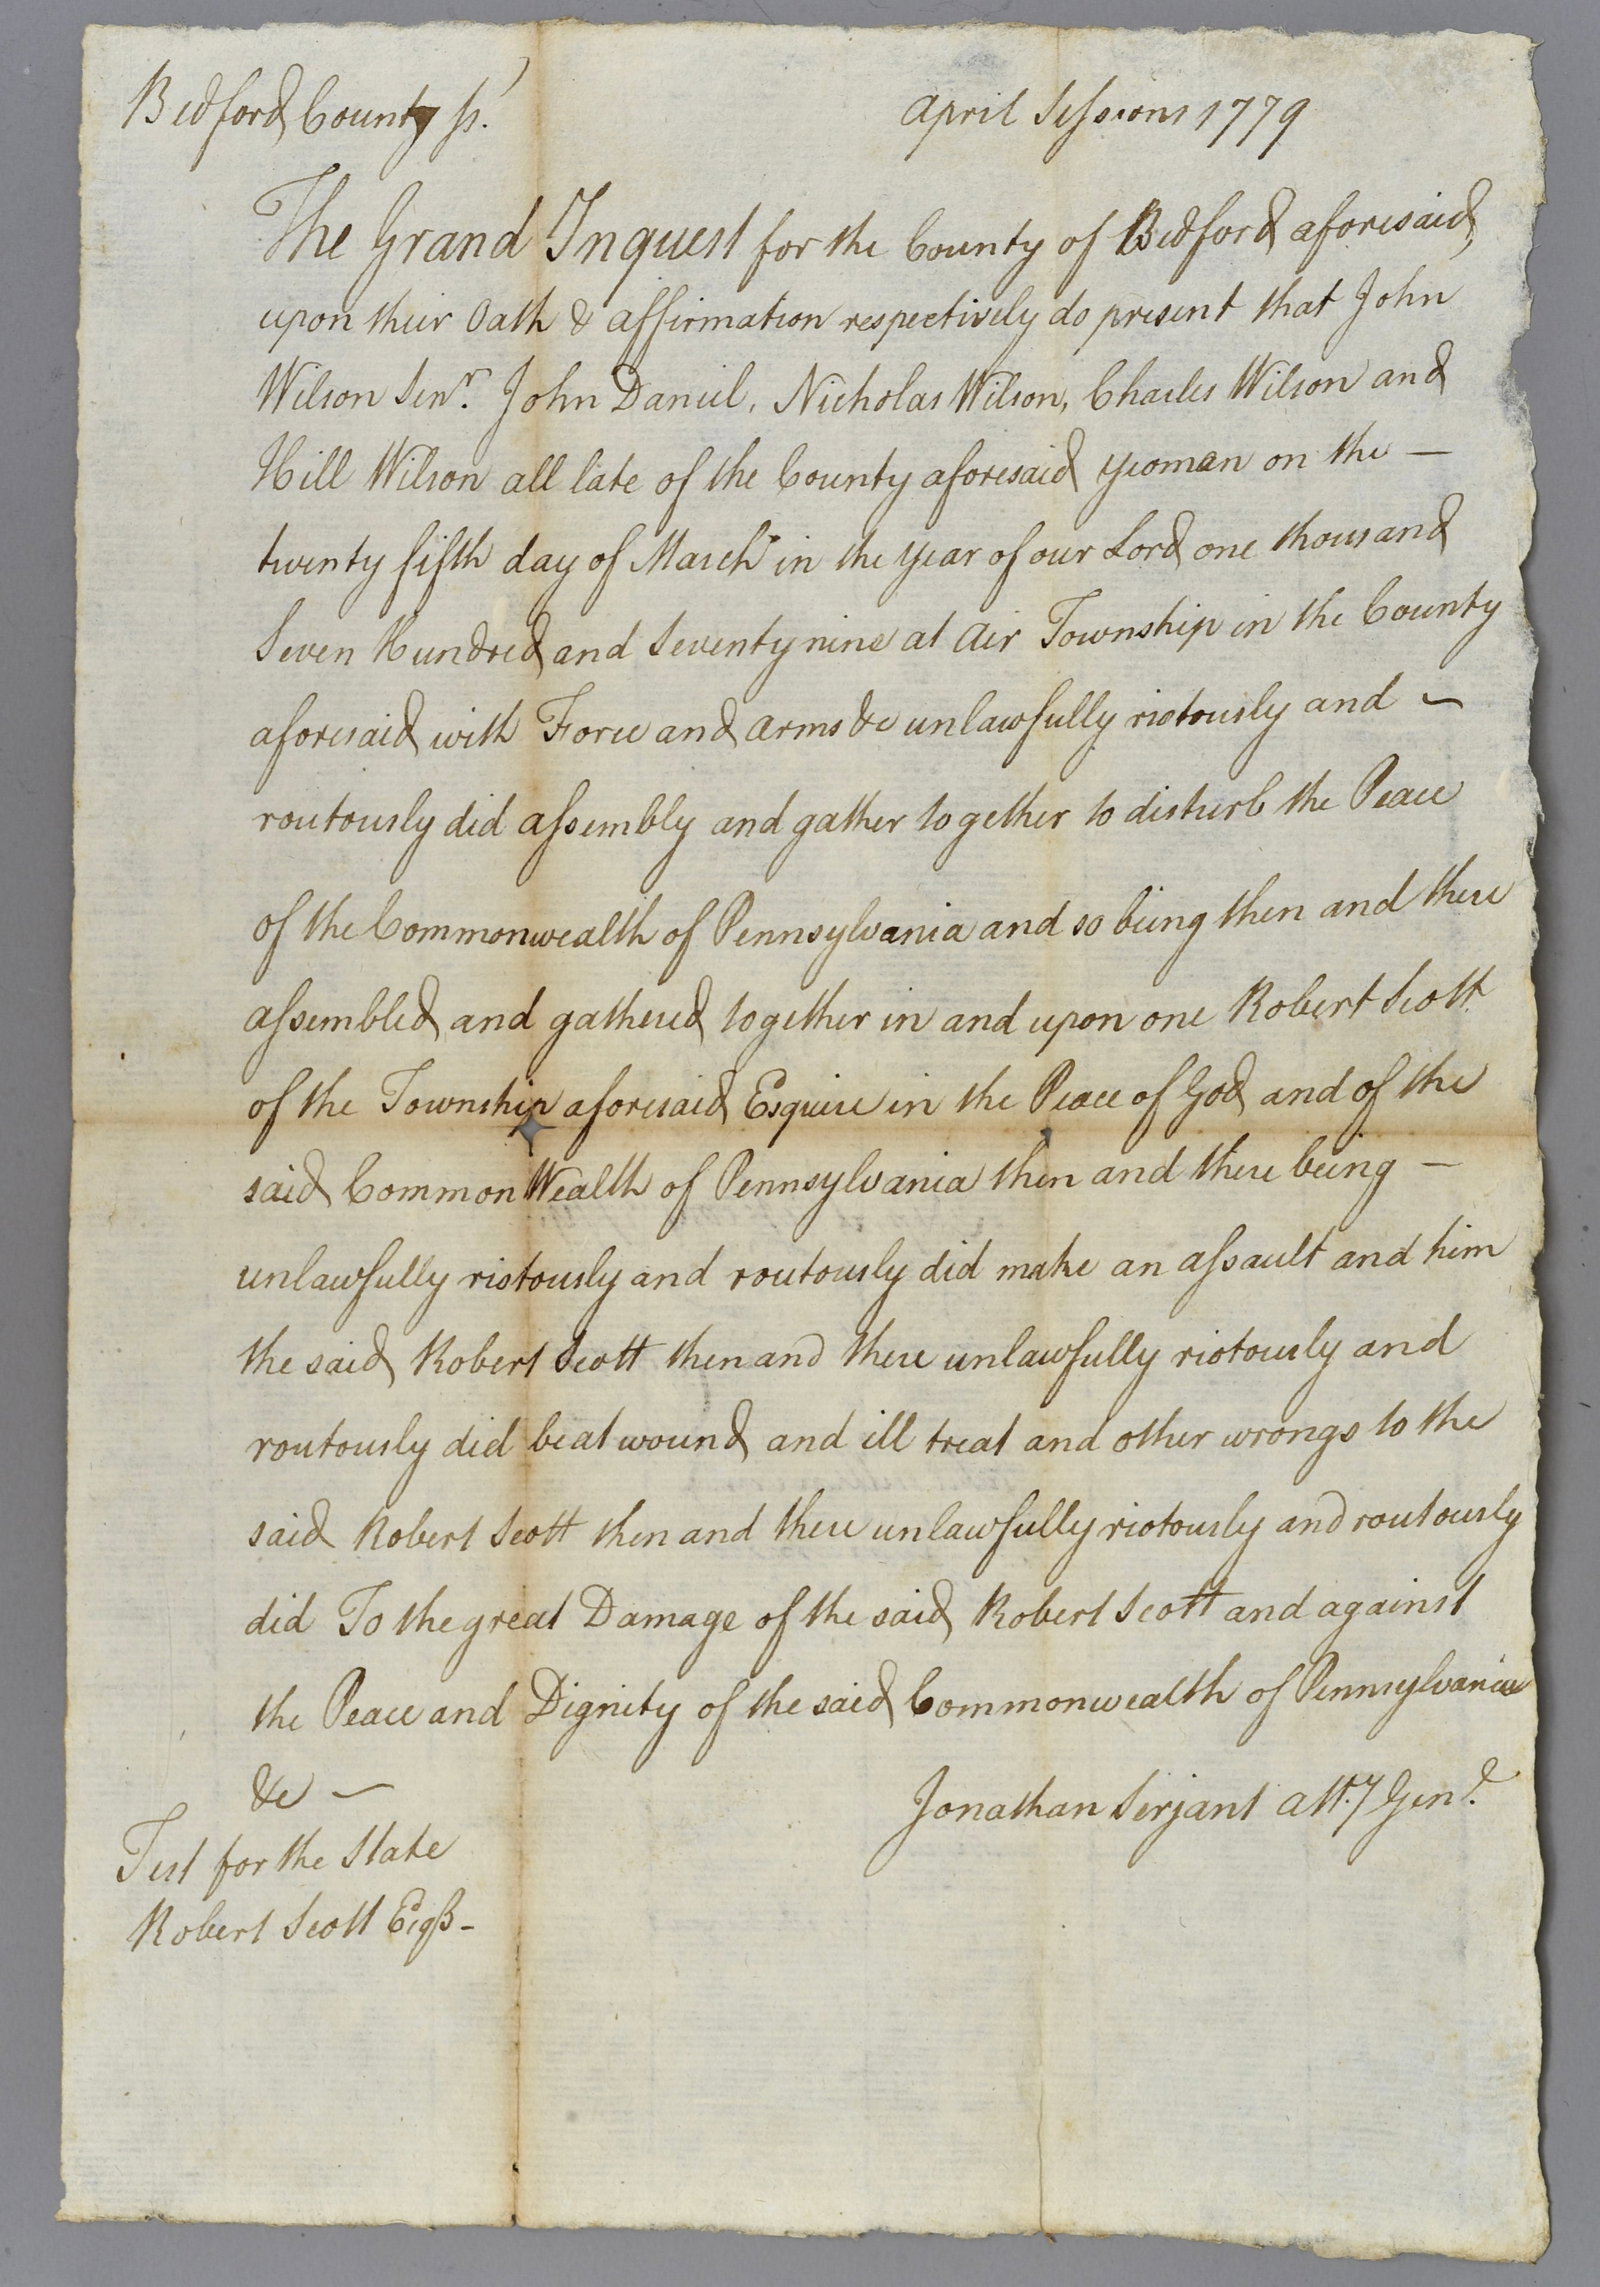 Bedford County ss.
April Sessions 1779
The Grand Inquest for the County of Bedford aforesaid,
upon their Oath & affirmation respectively do present that John
Wilson Senr. John Daniel, Nicholas Wilson, Charles Wilson and
Hill Wilson all late of the County aforesaid yeoman on the —
twenty fifth day of March in the year of our Lord one thousand
Seven Hundred and Seventy nine at Air Township in the County
aforesaid with Force and Arms &c unlawfully riotously and —
routously did assembly and gather together to disturb the Peace
of the Commonwealth of Pennsylvania and so being then and there
assembled and gathered together in and upon one Robert Scott
of the Township aforesaid Esquire in the Peace of God and of the
said Common Wealth of Pennsylvania then and there being —
unlawfully riotously and routously did make an assault and him
the said Robert Scott then and there unlawfully riotously and
routously did beat wound and ill treat and other wrongs to the
said Robert Scott then and there unlawfully riotously and routously
did To the great Damage of the said Robert Scott and against
the Peace and Dignity of the said Commonwealth of Pennsylvania
&c —
Jonathan Serjant Atty Genl.
Test for the State
Robert Scott Esqr -